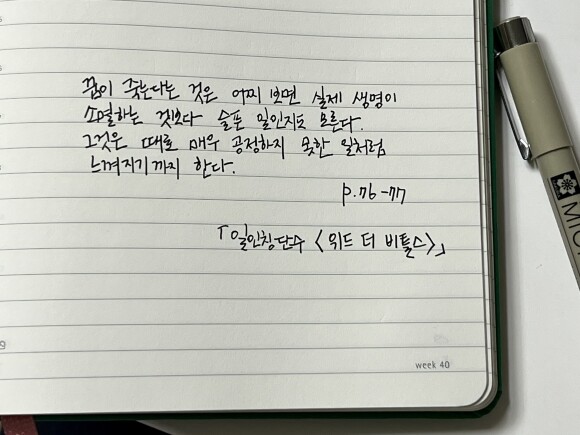 꿈이 죽는다는 것은 어찌 보면 실제 생명이
소멸하는 것보다 슬픈 일인지도 모른다.
그것은 때로 매우 공정하지 못한 일처럼
느껴지기까지 한다.
p.76-77
「일인칭단수 〈위드 더 비틀스〉」
week 40